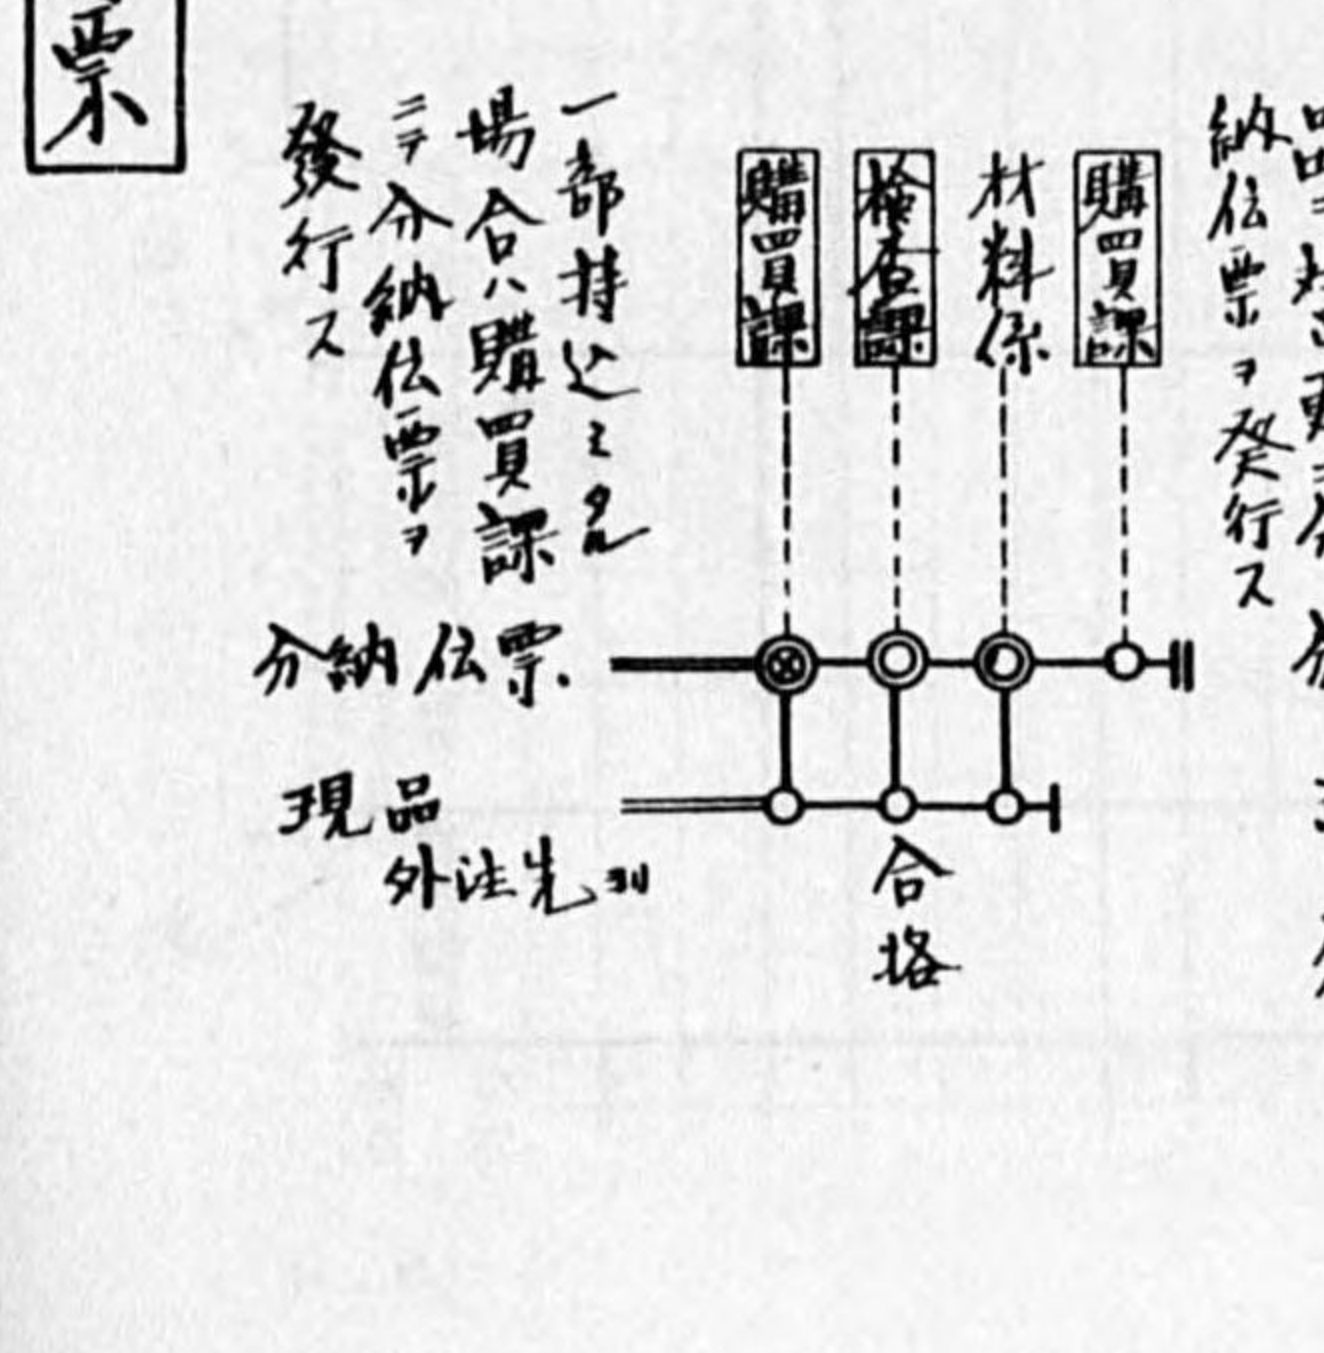 納伝票ヲ発行ス
購買課
材料係
検査課
購買課
一部持込ミタル
場合ハ購買課
ニテ分納伝票ヲ
發行ス
票
分納伝票
現品
外注先ヨリ
合格